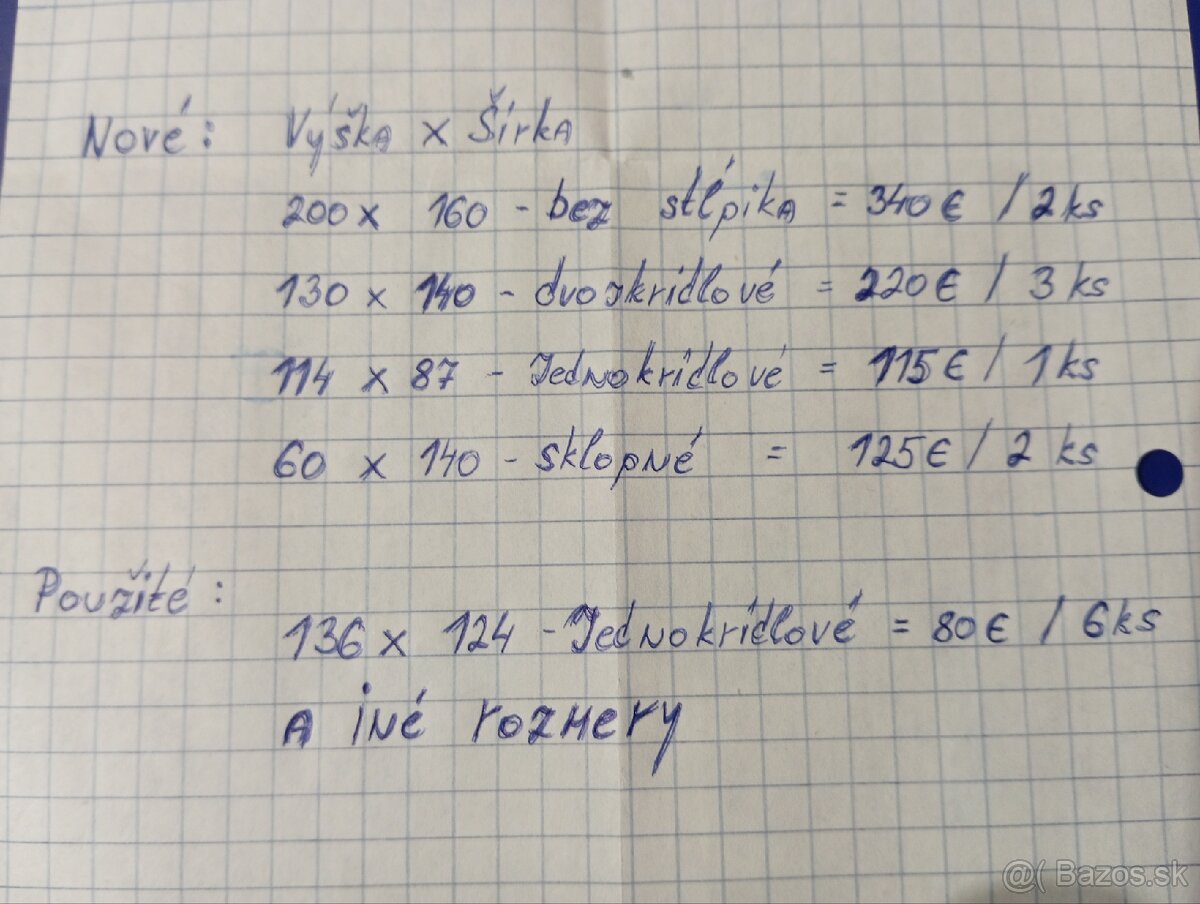 Nové: Výška x Šírka
200 x 160 - bez stĺpika = 340 € / 2 ks
130 x 140 - dvojkrídlové = 220 € / 3 ks
114 x 87 - Jednokrídlové = 115 € / 1 ks
60 x 140 - sklopné = 125 € / 2 ks
Použité:
136 x 124 - Jednokrídlové = 80 € / 6 ks
A iné rozmery
@( Bazos.sk